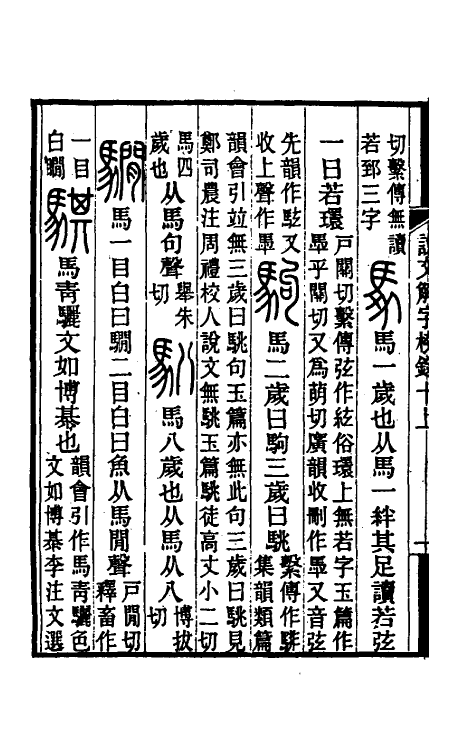 切繫傳無讀
若郅三字
馬一歲也从馬一絆其足讀若弦
一曰若環
戶關切繫傳弦作絃俗環上無若字玉篇作
乎關切又爲萌切廣韻收刪作又音弦
先韻作又
收上聲作
駒
馬二歲曰駒三歲曰駣
繫傳作
集韻類篇
韻會引竝無三歲曰駣句玉篇亦無此句三歲曰駣見
鄭司農注周禮校人說文無駣玉篇駣徒高丈小二切
馬四
歲也
从馬句聲
舉朱
切
馬八歲也从馬从八
博拔
切
馬一目白曰瞯二目白曰魚从馬閒聲
戶閒切
釋畜作
一目
白瞯
騏
馬青驪文如博棊也
韻會引作馬青驪色
文如博棊李注文選
說文解字校錄十上